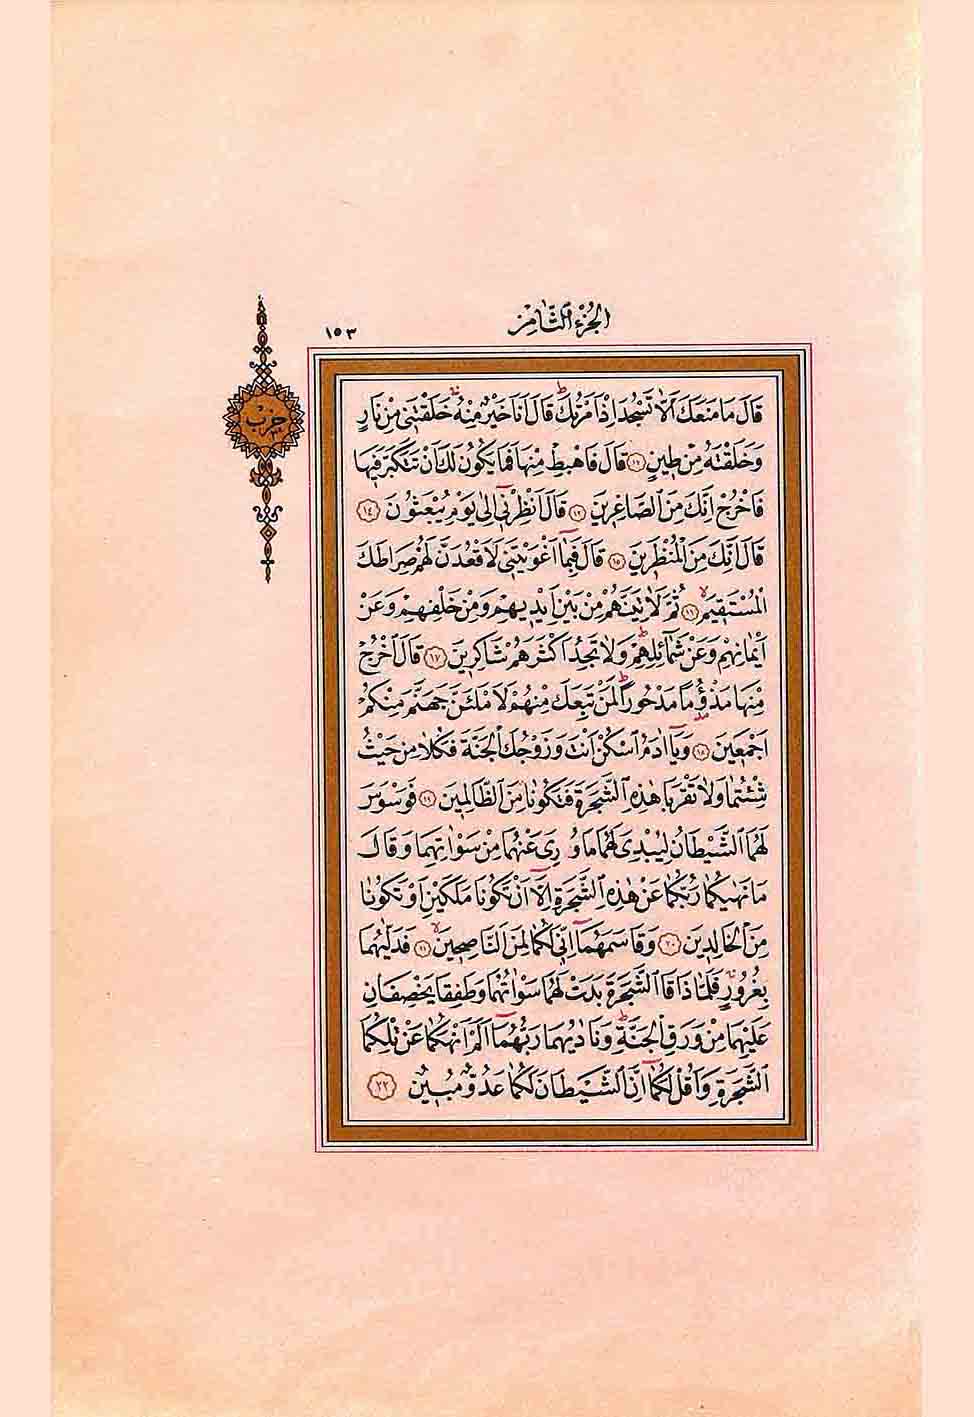 الجزء الثامن
١٥٣
حزب
قَالَ مَا مَنَعَكَ اَلَّا تَسْجُدَ اِذْ اَمَرْتُكَۜ قَالَ اَنَا خَيْرٌ مِنْهُۚ خَلَقْتَنٖى مِنْ نَارٍ
وَخَلَقْتَهُ مِنْ طٖينٍ ﴿١٢﴾ قَالَ فَاهْبِطْ مِنْهَا فَمَا يَكُونُ لَكَ اَنْ تَتَكَبَّرَ فٖيهَا
فَاخْرُجْ اِنَّكَ مِنَ الصَّاغِرٖينَ ﴿١٣﴾ قَالَ اَنْظِرْنٖٓى اِلٰى يَوْمِ يُبْعَثُونَ ﴿١٤﴾
قَالَ اِنَّكَ مِنَ الْمُنْظَرٖينَ ﴿١٥﴾ قَالَ فَبِمَٓا اَغْوَيْتَنٖى لَاَقْعُدَنَّ لَهُمْ صِرَاطَكَ
الْمُسْتَقٖيمَۙ ﴿١٦﴾ ثُمَّ لَاٰتِيَنَّهُمْ مِنْ بَيْنِ اَيْدٖيهِمْ وَمِنْ خَلْفِهِمْ وَعَنْ
اَيْمَانِهِمْ وَعَنْ شَمَٓائِلِهِمْۜ وَلَا تَجِدُ اَكْثَرَهُمْ شَاكِرٖينَ ﴿١٧﴾ قَالَ اخْرُجْ
مِنْهَا مَذْؤُمًا مَدْحُورًاۜ لَمَنْ تَبِعَكَ مِنْهُمْ لَاَمْلَئَنَّ جَهَنَّمَ مِنْكُمْ
اَجْمَعٖينَ ﴿١٨﴾ وَيَٓا اٰدَمُ اسْكُنْ اَنْتَ وَزَوْجُكَ الْجَنَّةَ فَكُلَا مِنْ حَيْثُ
شِئْتُمَا وَلَا تَقْرَبَا هٰذِهِ الشَّجَرَةَ فَتَكُونَا مِنَ الظَّالِمٖينَ ﴿١٩﴾ فَوَسْوَسَ
لَهُمَا الشَّيْطَانُ لِيُبْدِىَ لَهُمَا مَا وُ۫رِىَ عَنْهُمَا مِنْ سَوْاٰتِهِمَا وَقَالَ
مَا نَهٰيكُمَا رَبُّكُمَا عَنْ هٰذِهِ الشَّجَرَةِ اِلَّٓا اَنْ تَكُونَا مَلَكَيْنِ اَوْ تَكُونَا
مِنَ الْخَالِدٖينَ ﴿٢٠﴾ وَقَاسَمَهُمَٓا اِنّٖى لَكُمَا لَمِنَ النَّاصِحٖينَۙ ﴿٢١﴾ فَدَلّٰيهُمَا
بِغُرُورٍۚ فَلَمَّا ذَاقَا الشَّجَرَةَ بَدَتْ لَهُمَا سَوْاٰتُهُمَا وَطَفِقَا يَخْصِفَانِ
عَلَيْهِمَا مِنْ وَرَقِ الْجَنَّةِۜ وَنَادٰيهُمَا رَبُّهُمَٓا اَلَمْ اَنْهَكُمَا عَنْ تِلْكُمَا
الشَّجَرَةِ وَاَقُلْ لَكُمَٓا اِنَّ الشَّيْطَانَ لَكُمَا عَدُوٌّ مُبٖينٌ ﴿٢٢﴾